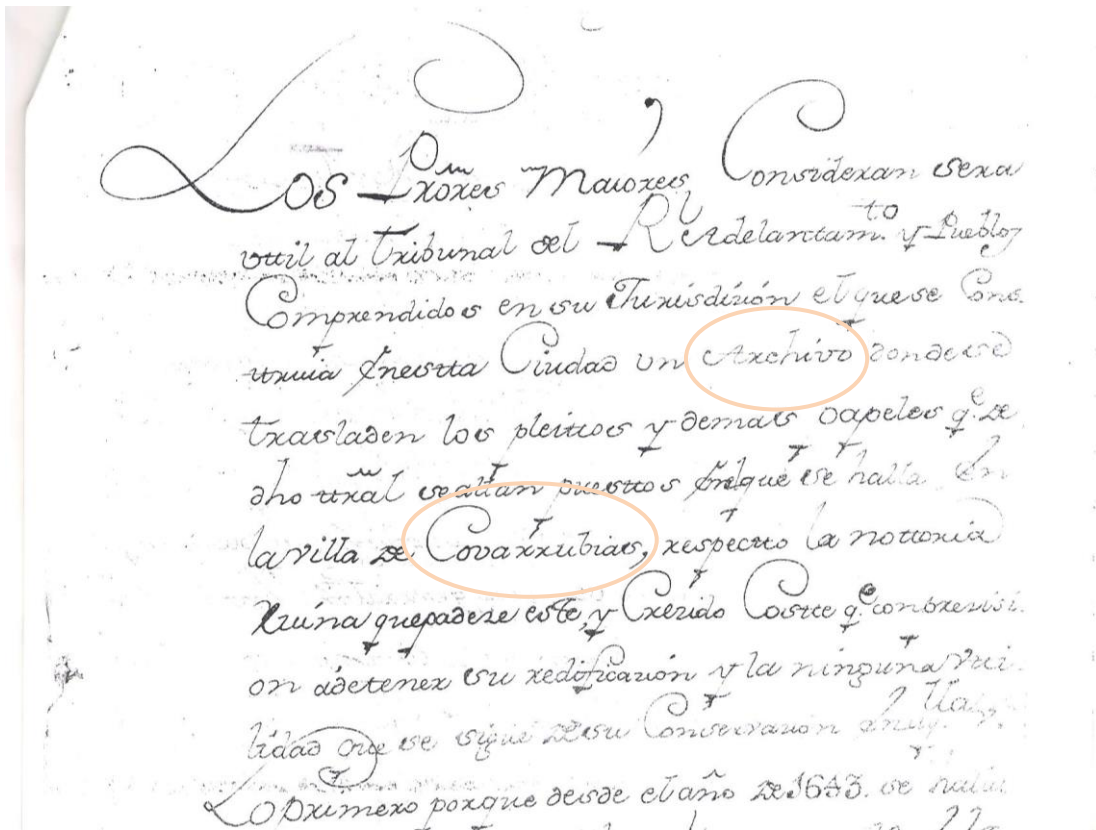 Los Prores Maiores, Consideran sera
vttil al tribunal del Rl Adelanttamto. y Pueblos
Comprendidos en su Jurisdizión el que se Cons
truia Enestta Ciudad un Archivo donde se
trasladen los pleittos y demas papeles qe. de
dho ttral se allan puesttos Enelque se halla En
la villa de Covarrubias, respectto la nottoria
Ruina quepadeze este, y Crezido Costte qe. conprezisi
on á de tener su redificazión y la ninguna Vtti
lidad que se sigue de su Conservazion
Lo primero porque desde el año de 1643. se